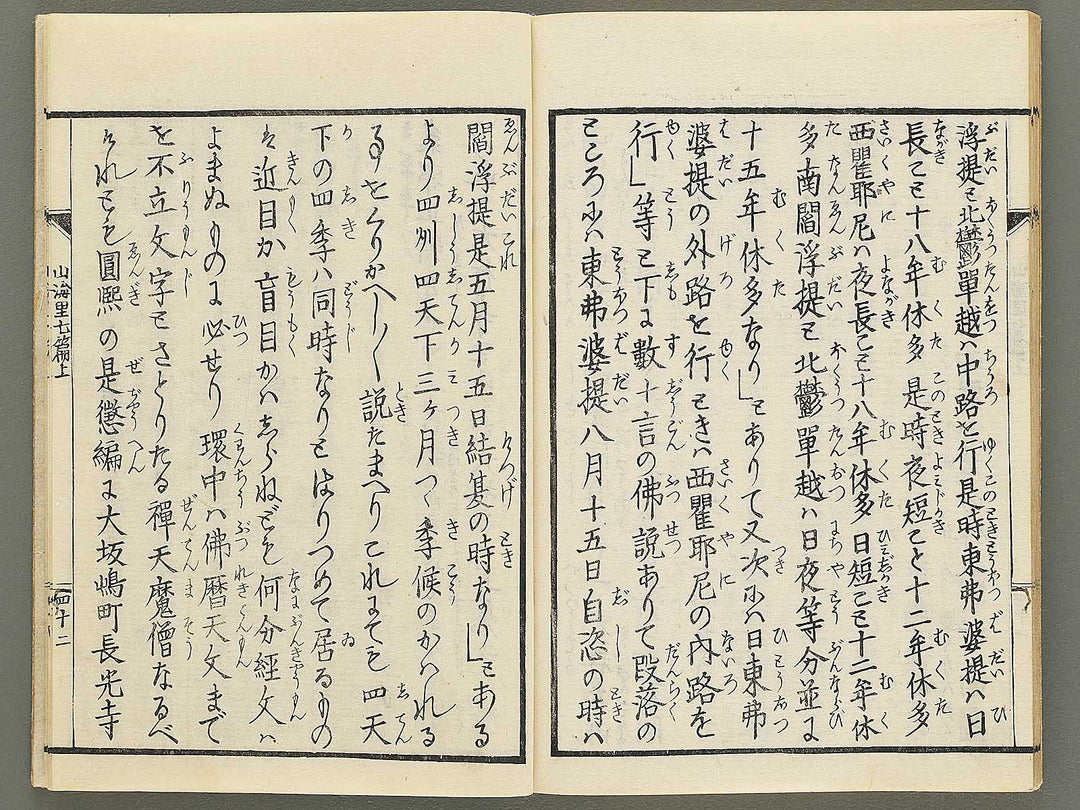 浮提ヿ北鬱單越ハ中路を行是時東弗婆提ハ日
長ヿ十八牟休多是時夜短ヿ十二牟休多
西瞿耶尼ハ夜長ヿ十八牟休多日短ヿ十二牟休
多南閻浮提ヿ北鬱單越ハ日夜等分並に
十五牟休多なり」とありて又次にハ日東弗
婆提の外路を行ときハ西瞿耶尼の内路を
行」等と下に數十言の佛説ありて段落の
ところにハ東弗婆提八月十五日自恣の時ハ
閻浮提是五月十五日結夏の時なり」とある
より四州四天下三ヶ月つゝ季候のかはれる
るをくりかへし〳〵説たまへりこれにても四天
下の四季ハ同時なりとはりつめて居るもの
ハ近目か盲目かハしらねども何分經文ハ
よまぬものに必せり環中ハ佛暦天文まで
を不立文字とさとりたる禪天魔僧なるべ
けれども圓熈の是懲編に大坂嶋町長光寺
山海里七篇上
四十二